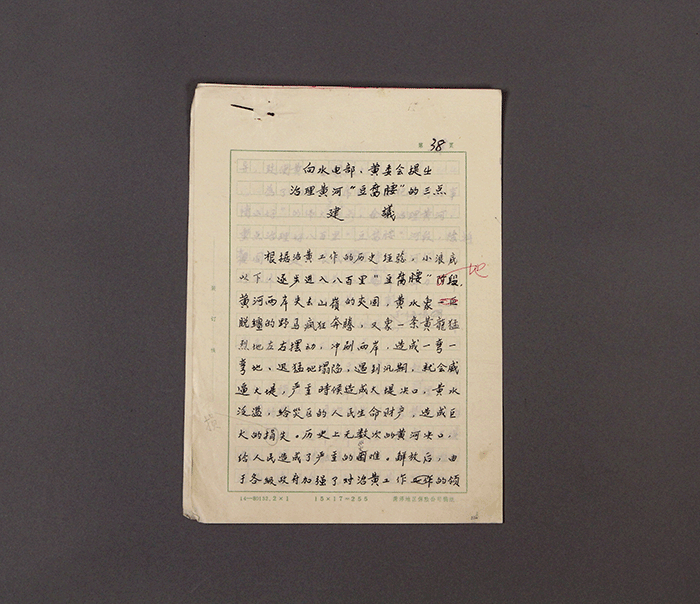 第 38 页
向水电部、黄委会提出
治理黄河“豆腐腰”的三点
建議
根据治黄工作的历史经验，小浪底
以下，逐步进入八百里“豆腐腰”阶段，
地
黄河两岸失去山嶺的夹固，黄水象一匹
脱缰的野马疯狂奔腾，又象一条黄龍猛
烈地左右摆动，冲刷两岸，造成一弯一
弯地、迅猛地塌陷，遇到汛期，就会威
逼大堤，严重時候造成大堤决口，黄水
泛滥，给灾区的人民生命财产，造成巨
大的损失。历史上无数次的黄河决口，
给人民造成了严重的困难。解放后，由
于各级政府加强了对治黄工作的领
15×17=255